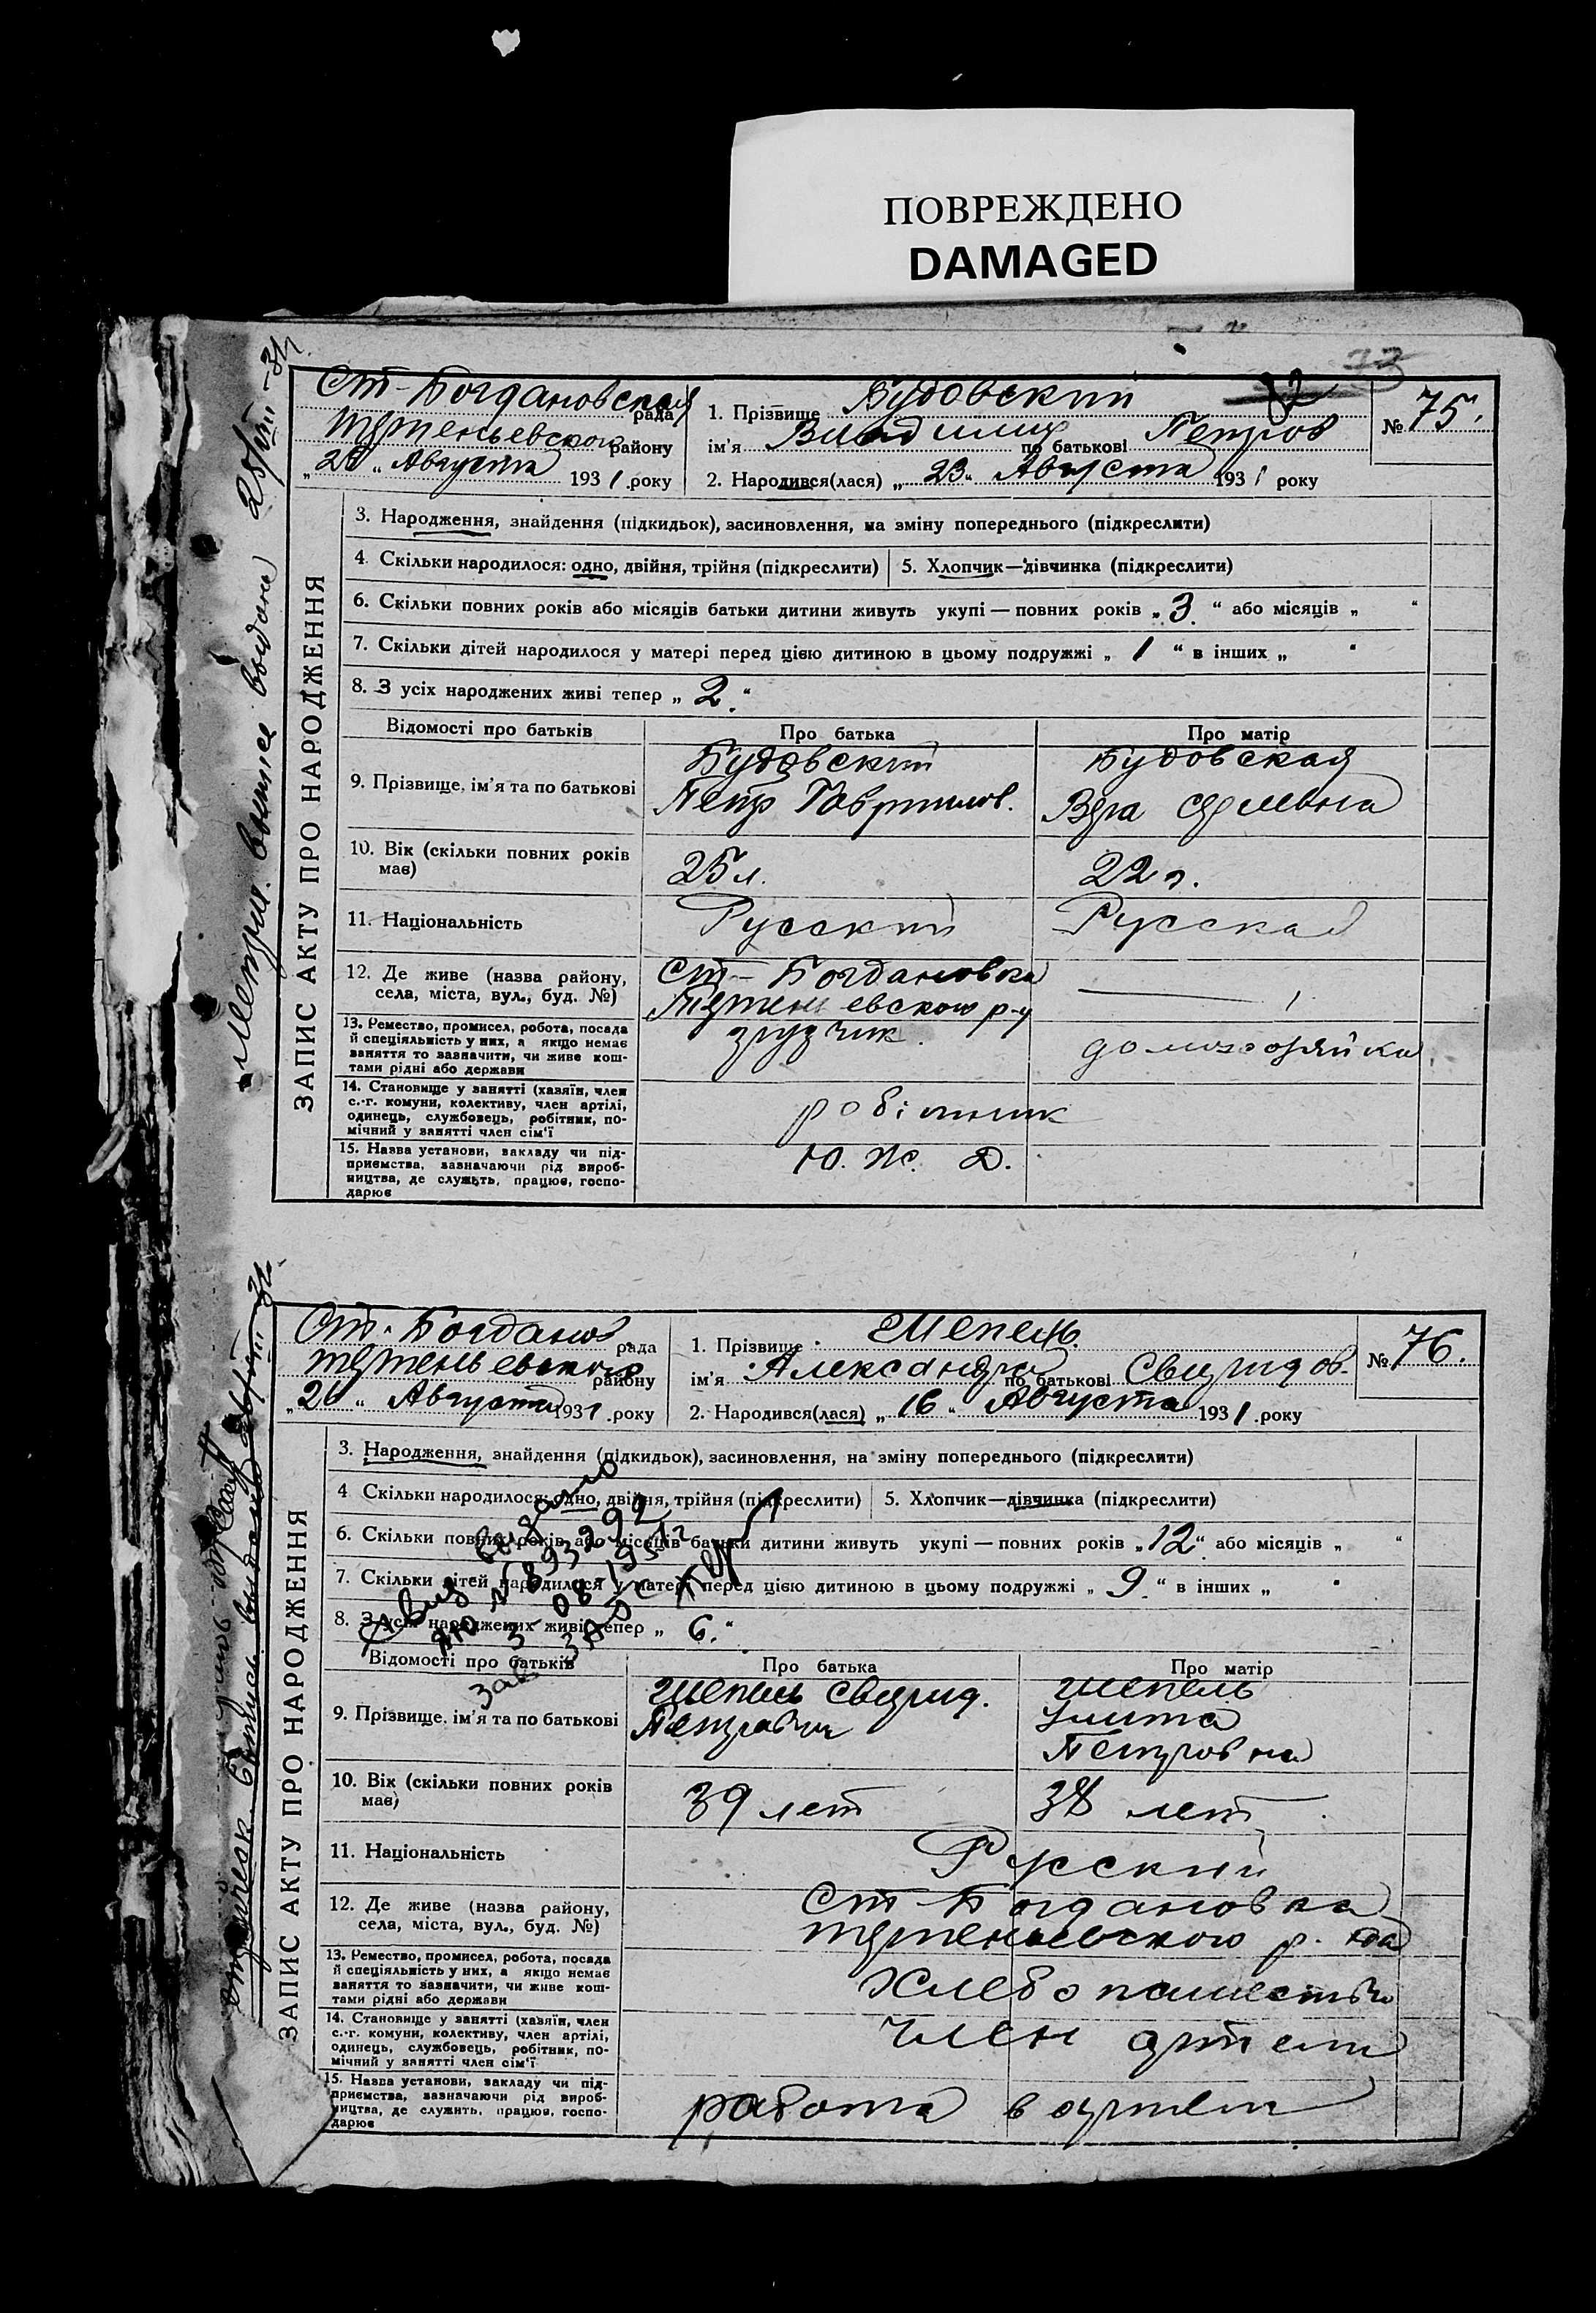 ПОВРЕЖДЕНО
DAMAGED
Ст-Богдановская рада
Терпеньевского району
"26" Августа 1931 року
1. Прізвище Будовский
ім'я Владимир по батькові Петров
2. Народився(лася) "23" Августа 1931 року
№ 75.
Метрич. выписка выдана
ЗАПИС АКТУ ПРО НАРОДЖЕННЯ
3. Народження, знайдення (підкидьок), засиновлення, на зміну попереднього (підкреслити)
4. Скільки народилося: одно, двійня, трійня (підкреслити) 5. Хлопчик—дівчинка (підкреслити)
6. Скільки повних років або місяців батьки дитини живуть укупі — повних років "3" або місяців " "
7. Скільки дітей народилося у матері перед цією дитиною в цьому подружжі "1" в інших " "
8. З усіх народжених живі тепер "2."
Відомості про батьків Про батька Про матір
9. Прізвище, ім'я та по батькові
Будовский
Петр Гаврилов.
Будовская
Вера
10. Вік (скільки повних років має)
25 л.
22 л.
11. Національність
Русский
Русская
12. Де живе (назва району, села, міста, вул., буд. №)
Ст-Богдановка
Терпеньевского р-у
13. Ремество, промисел, робота, посада й спеціяльність у них, а якщо немає заняття то зазначити, чи живе коштами рідні або держави
грузчик.
домохозяйка
14. Становище у занятті (хазяїн, член с.-г. комуни, колективу, член артілі, одинець, службовець, робітник, помічний у занятті член сім'ї
робітник
15. Назва установи, закладу чи підприємства, зазначаючи рід виробництва, де служить, працює, господарює
Ю. Ж. Д.
Ст-Богданов. рада
Терпеньевского району
"26" Августа 1931 року
1. Прізвище Шепель.
ім'я Александра по батькові Свиридов.
2. Народився(лася) "16" Августа 1931 року
№ 76.
ЗАПИС АКТУ ПРО НАРОДЖЕННЯ
3. Народження, знайдення (підкидьок), засиновлення, на зміну попереднього (підкреслити)
4 Скільки народилося: одно, двійня, трійня (підкреслити) 5. Хлопчик—дівчинка (підкреслити)
6. Скільки повних років або місяців батьки дитини живуть укупі — повних років "12" або місяців " "
7. Скільки дітей народилося у матері перед цією дитиною в цьому подружжі "9" в інших " "
8. З усіх народжених живі тепер "6."
Відомості про батьків Про батька Про матір
9. Прізвище, ім'я та по батькові
Шепель Свирид.
Петрович
Шепель
Улита
Петровна
10. Вік (скільки повних років має)
39 лет
38 лет
11. Національність
Русский
12. Де живе (назва району, села, міста, вул., буд. №)
Ст-Богдановка
Терпеньевского р.
13. Ремество, промисел, робота, посада й спеціяльність у них, а якщо немає заняття то зазначити, чи живе коштами рідні або держави
Хлебопашество
14. Становище у занятті (хазяїн, член с.-г. комуни, колективу, член артілі, одинець, службовець, робітник, помічний у занятті член сім'ї
член артели
15. Назва установи, закладу чи підприємства, зазначаючи рід виробництва, де служить, працює, господарює
работа в артели